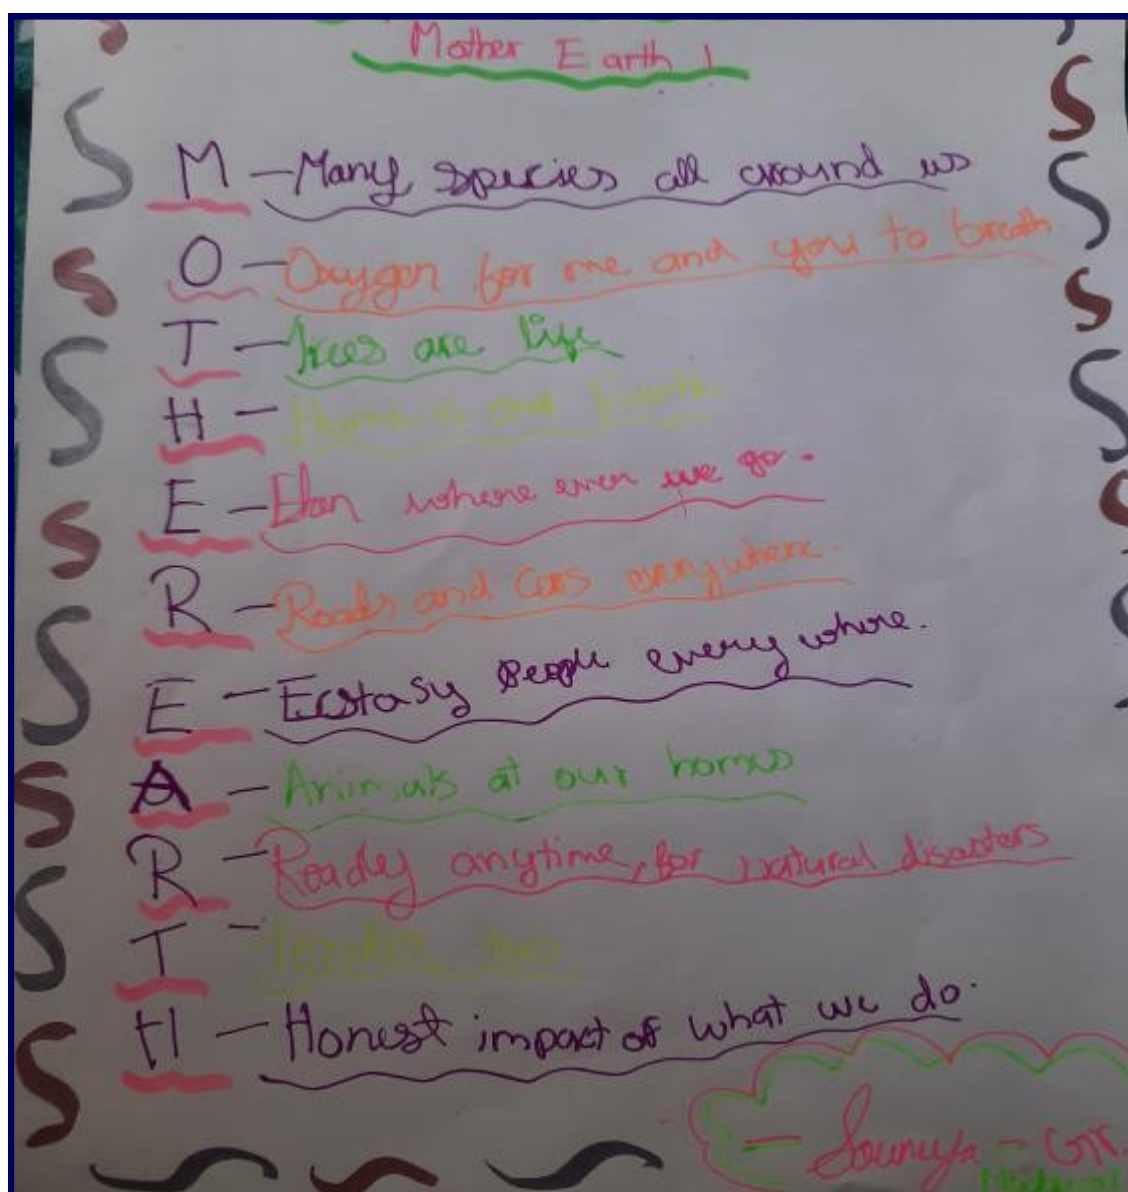 Mother Earth !
M - Many species all around us
O - Oxygen for me and you to breath
T - Trees are life
H - Home is our Earth
E - Elan where ever we go.
R - Roads and Cars everywhere.
E - Ecstasy people every where.
A - Animals at our homes
R - Ready anytime, for natural disasters
T -
H - Honest impact of what we do.